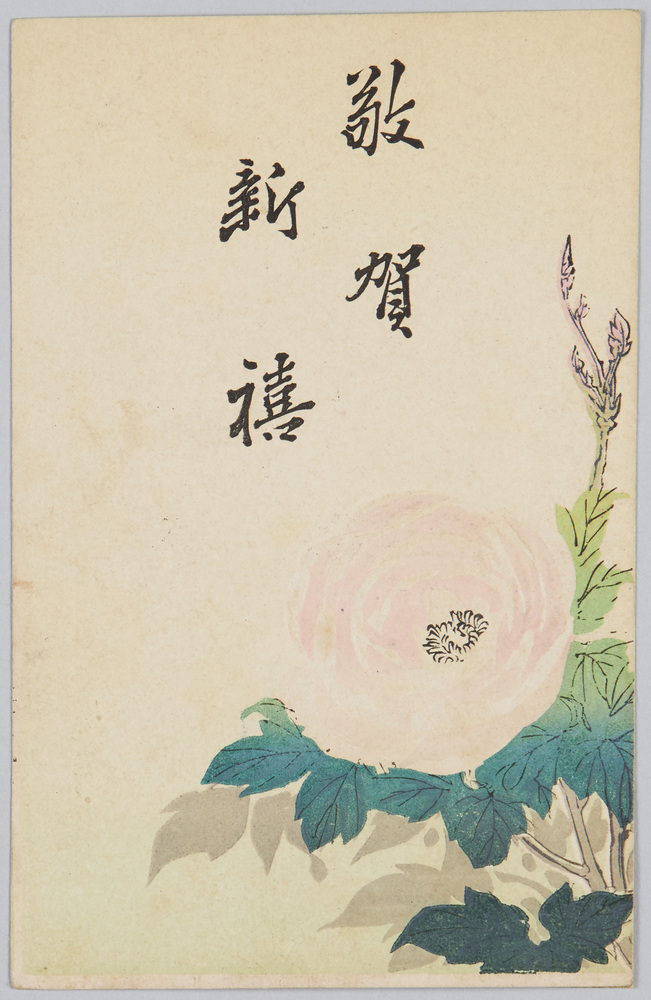 敬賀
新禧